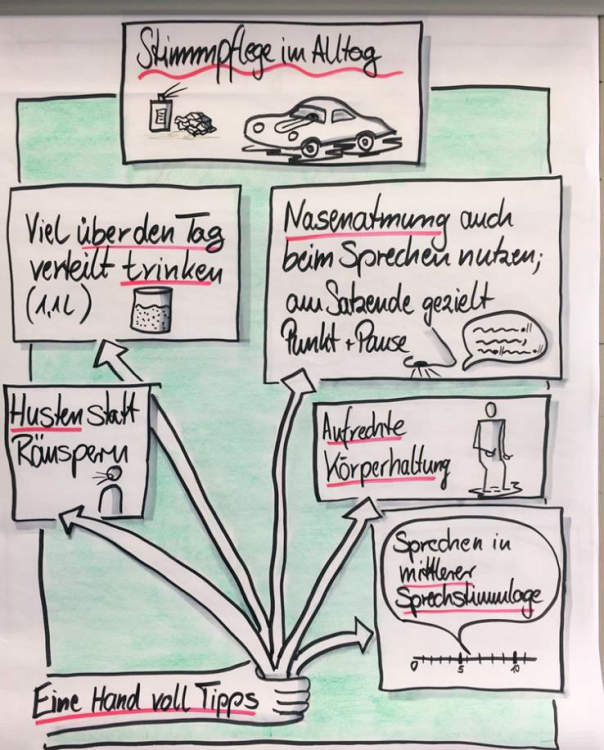 Stimmpflege im Alltag
Viel über den Tag
verteilt trinken
(1,1L)
Nasenatmung auch
beim Sprechen nutzen;
am Satzende gezielt
Punkt + Pause
Husten statt
Räuspern
Aufrechte
Körperhaltung
Sprechen in
mittlerer
Sprechstimmlage
0 5 10
Eine Hand voll Tipps